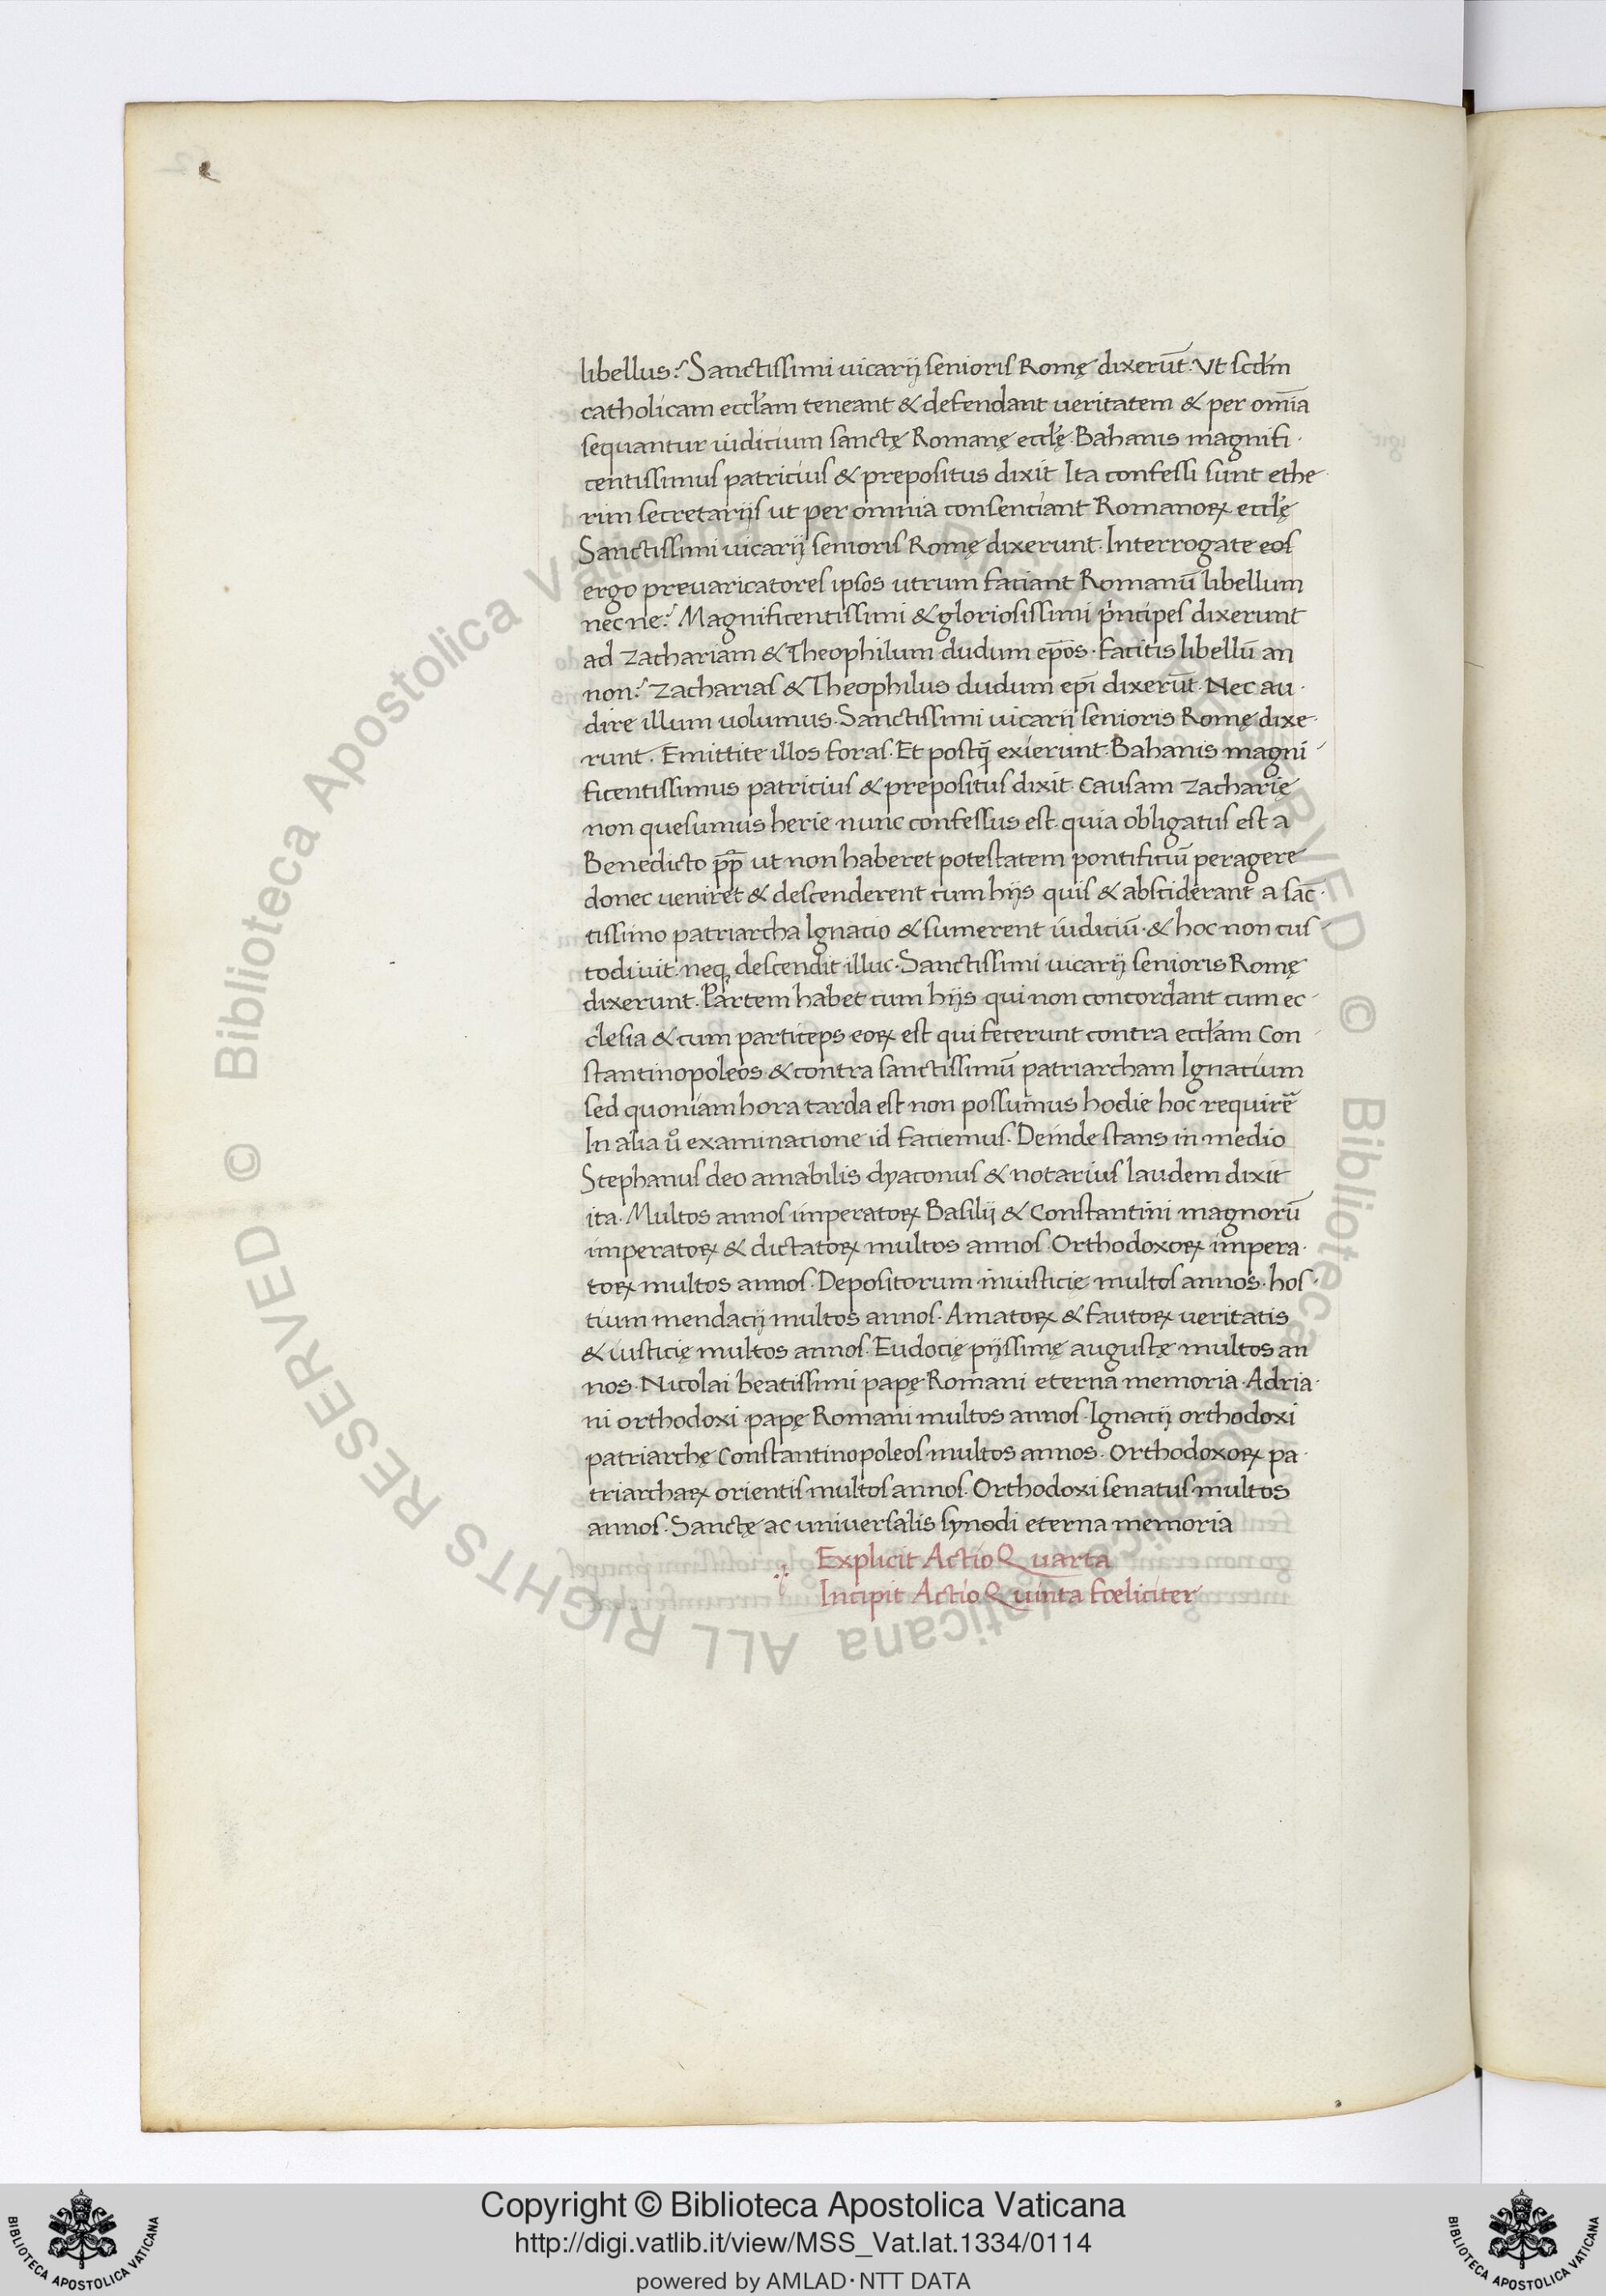 libellus? Sanctissimi uicarij senioris Romę dixerūt. Vt scd̄m
catholicam eccl̄am teneant & defendant ueritatem & per om̄ia
sequantur iudicium sanctę Romanę eccl̄ę. Bahanis magnifi
centissimus patricius & prepositus dixit Ita confessi sunt ethe
rim secretarijs ut per omnia consenciant Romanoꝝ eccl̄ę
Sanctissimi uicarij senioris Romę dixerunt. Interrogate eos
ergo preuaricatores ipsos utrum faciant Romanū libellum
nec ne? Magnificentissimi & gloriosissimi p̄ncipes dixerunt
ad Zachariam & Theophilum dudum ep̄os. Facitis libellū an
non? Zacharias & Theophilus dudum ep̄i dixerūt. Nec au
dire illum uolumus. Sanctissimi uicarij senioris Romę dixe
runt. Emittite illos foras. Et postq̄ exierunt. Bahanis magni
ficentissimus patricius & prepositus dixit. Causam Zacharię
non quesumus herie nunc confessus est quia obligatus est a
Benedicto pp̄ ut non haberet potestatem pontificiū peragere
donec ueniret & descenderent cum hijs quis & absciderant a sāc
tissimo patriarcha Ignacio & sumerent iudiciū. & hoc non cus
todiuit. neqꝫ descendit illuc. Sanctissimi uicarij senioris Romę
dixerunt. Partem habet cum hijs qui non concordant cum ec
clesia & cum particeps eoꝝ est qui fecerunt contra eccl̄am Con
stantinopoleos & contra sanctissimū patriarcham Ignacium
sed quoniam hora tarda est non possumus hodie hoc requirē
In alia uͦ examinacione id faciemus. Deinde stans in medio
Stephanus deo amabilis dyaconus & notarius laudem dixit
ita. Multos annos imperatoꝝ Basilij & Constantini magnorū
imperatoꝝ & dictatoꝝ multos annos. Orthodoxoꝝ impera
toꝝ multos annos. Depositorum iniusticie multos annos. hos
tium mendacij multos annos. Amatoꝝ & fautoꝝ ueritatis
& iusticię multos annos. Eudocię pijssimę augustę multos an
nos. Nicolai beatissimi papę Romani eterna memoria. Adria
ni orthodoxi papę Romani multos annos. Ignacij orthodoxi
patriarchę Constantinopoleos multos annos. Orthodoxoꝝ pa
triarchaꝝ orientis multos annos. Orthodoxi senatus multos
annos. Sanctę ac uniuersalis synodi eterna memoria
Explicit Actio Quarta
Incipit Actio Quinta fœliciter
© Biblioteca Apostolica Vaticana ALL RIGHTS RESERVED
© Biblioteca Apostolica Vaticana ALL RIGHTS RESERVED
Copyright © Biblioteca Apostolica Vaticana
http://digi.vatlib.it/view/MSS_Vat.lat.1334/0114
powered by AMLAD・NTT DATA
BIBLIOTECA APOSTOLICA VATICANA
BIBLIOTECA APOSTOLICA VATICANA